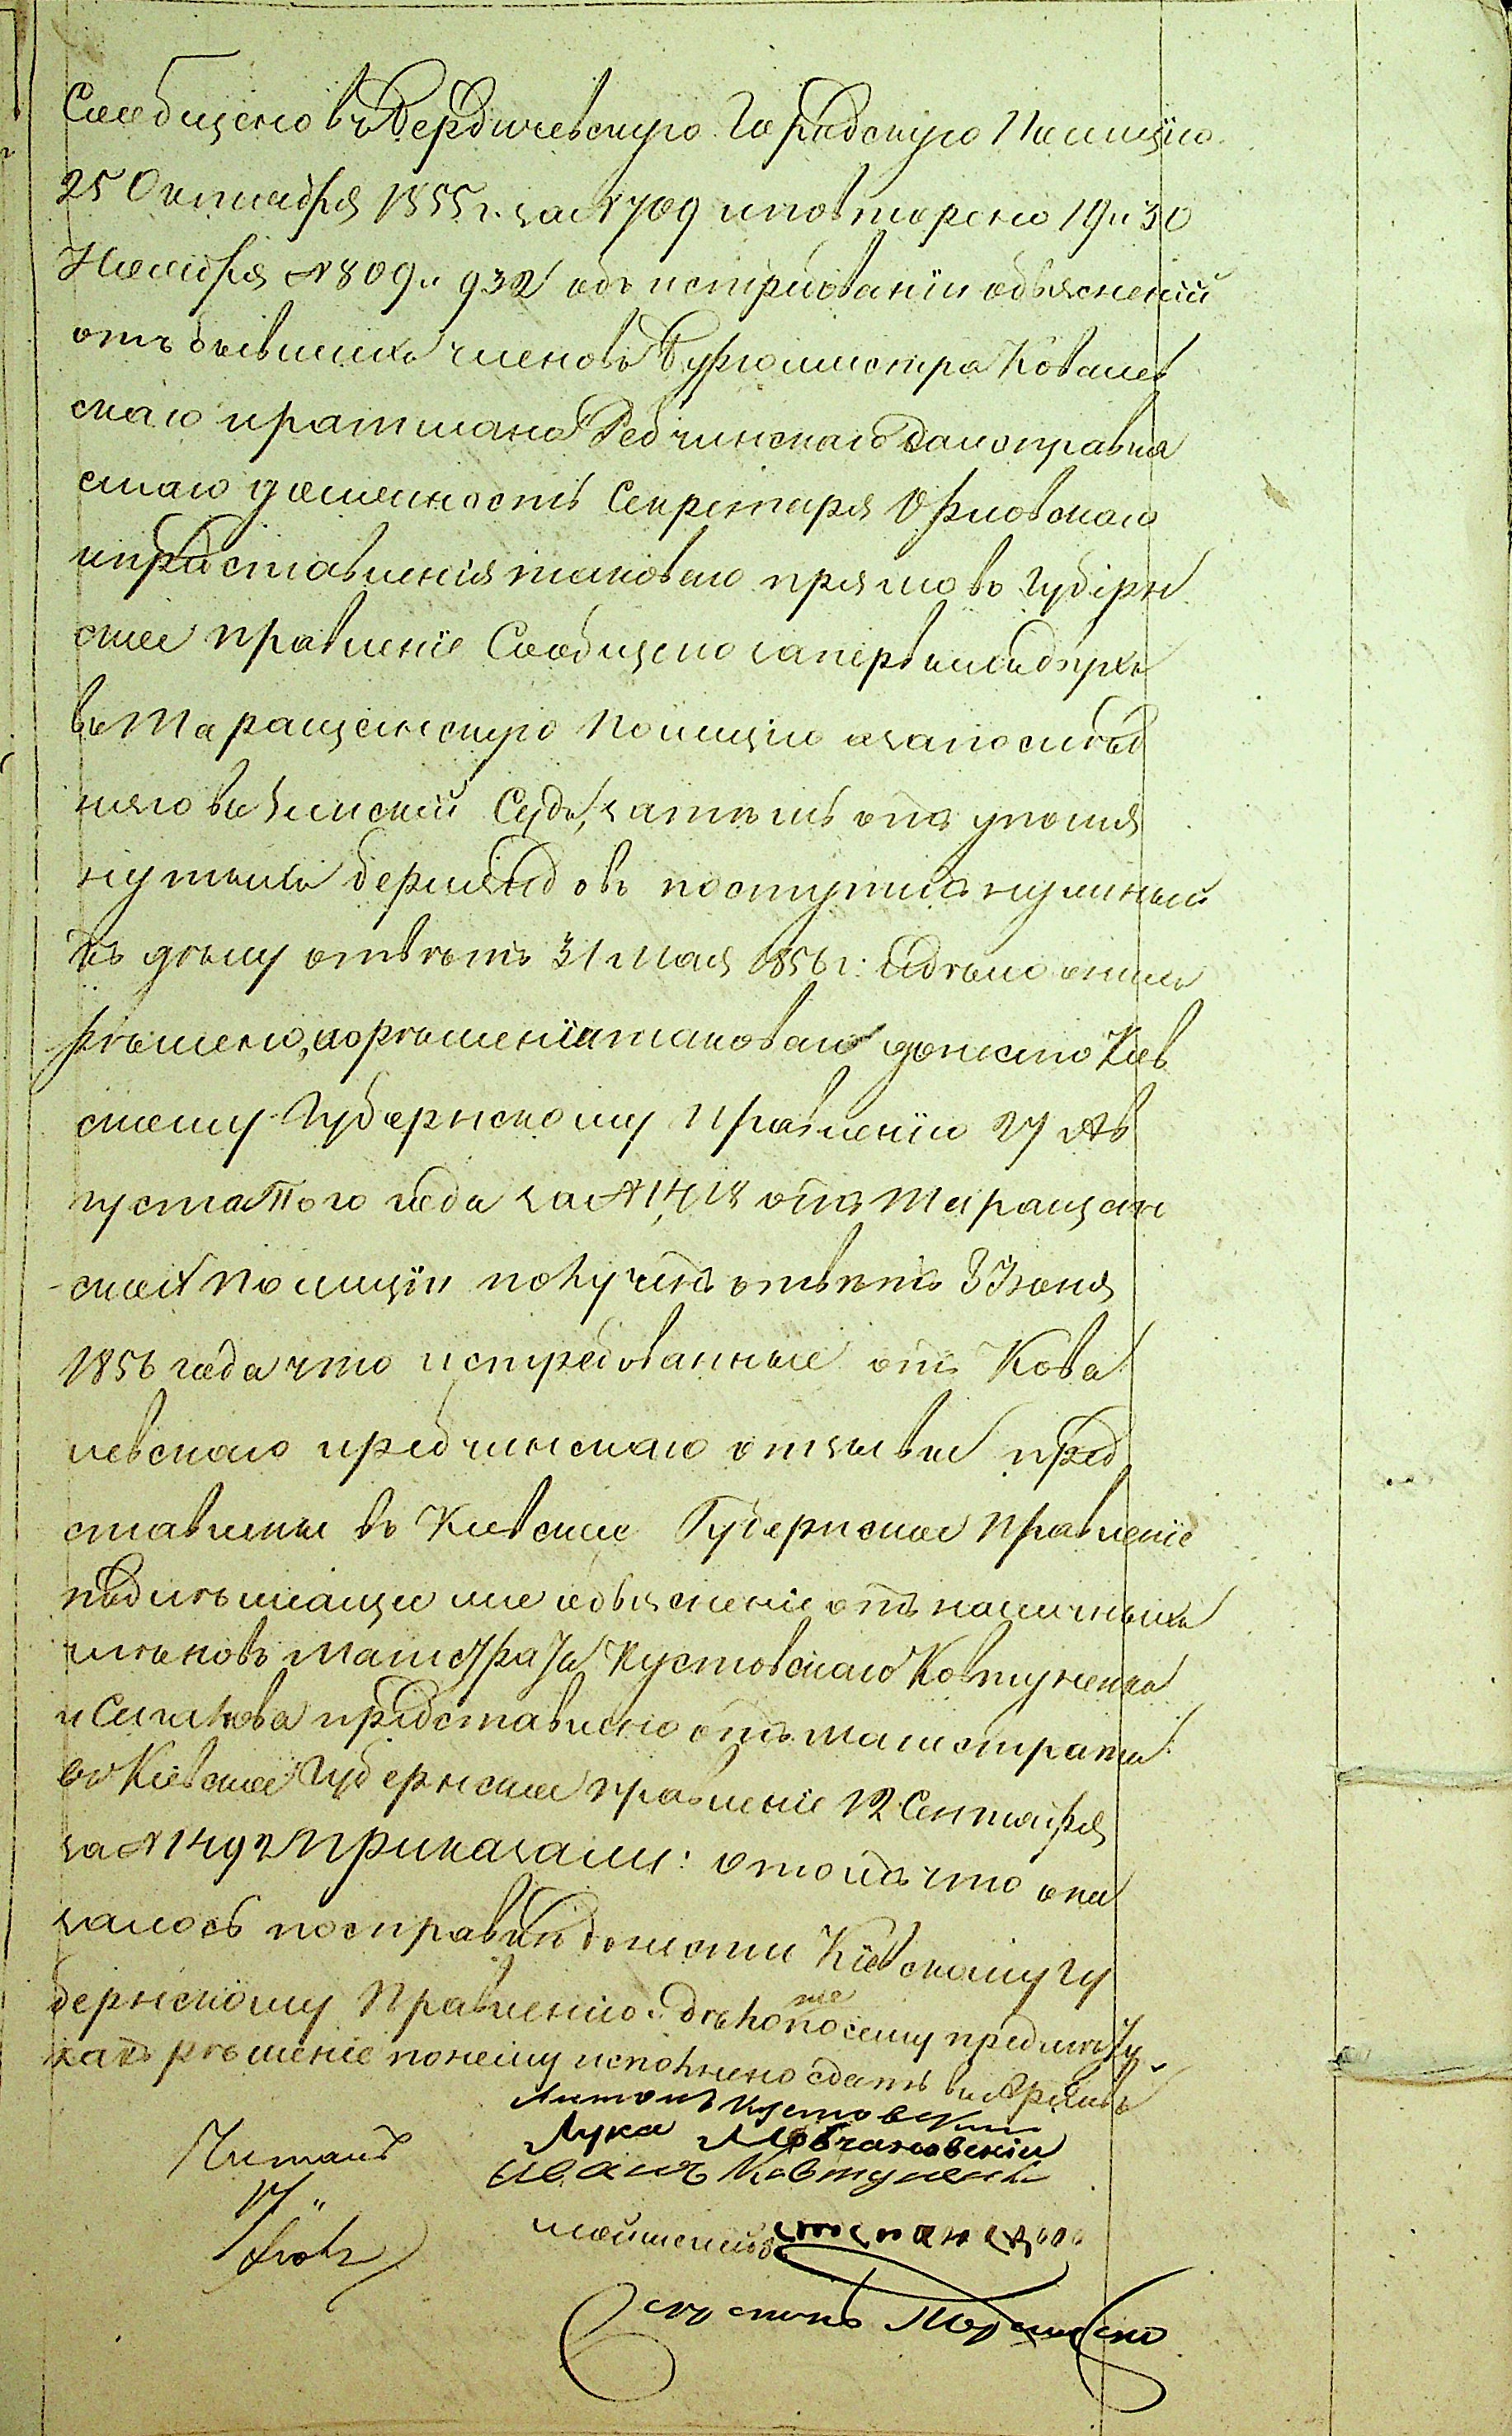 Сообщено въ Бердичевскую Городскую Полицію
25 Октября 1855 г. за № 709 и повторено 19 и 30
Ноября № 809 и 932 объ истребованіи объясненій
отъ бывшихъ членовъ Бургомистра Ковалев
скаго и ратмана Редчинскаго да исправля
ющаго должность Секретаря Орловскаго
и представленія таковаго прямо въ Губерн
ское правленіе Сообщено за первыхъ двухъ
въ Таращанскую полицію а за послед
няго въ Земскій Судъ, затемъ отъ упомя
нутыхъ
поступилъ нужный
къ делу ответъ 31 Мая 1856 г. дело
решено, о решеніи таковаго донесено Кіев
скому Губернскому Правленію 27 Ав
густа того года за № 1418 отъ Таращан
ской полиціи полученъ ответъ 3 Іюня
1856 года что истребованные отъ Кова
левскаго и Редчинскаго отзывы пред
ставлены въ Кіевское Губернское Правленіе
подлежащее же объясненіе отъ наличныхъ
членовъ Магистрата Кустовскаго Ковтуненка
и представлено отъ магистрата
въ Кіевское Губернское правленіе 12 Сентября
за № 1492 Приказали: о томъ что ока
залось по справке донести Кіевскому Гу
бернскому Правленію. дело же по сему предмету
какъ решеніе по нему исполнено сдать въ Архивъ
Антонъ Кустовскій
Лука Мовчановскій
Читалъ
Иванъ Ковтуненко